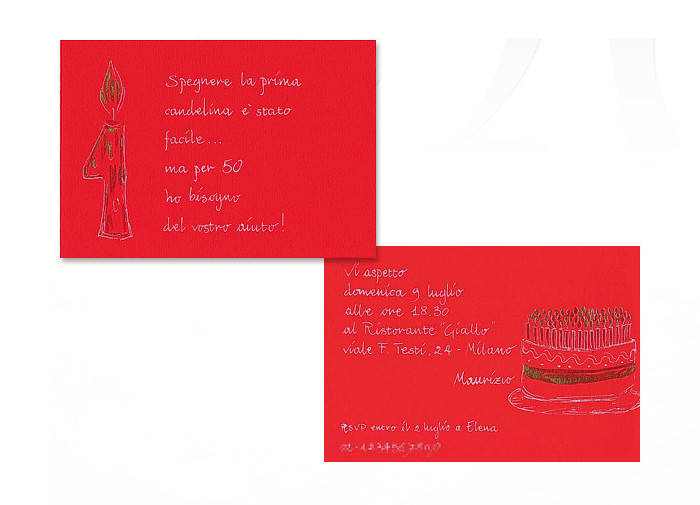 Spegnere la prima
candelina è stato
facile...
ma per 50
ho bisogno
del vostro aiuto!
Vi aspetto
domenica 9 luglio
alle ore 18.30
al Ristorante "Giallo"
viale F. Testi, 24 - Milano
Maurizio
RSVP entro il 2 luglio a Elena